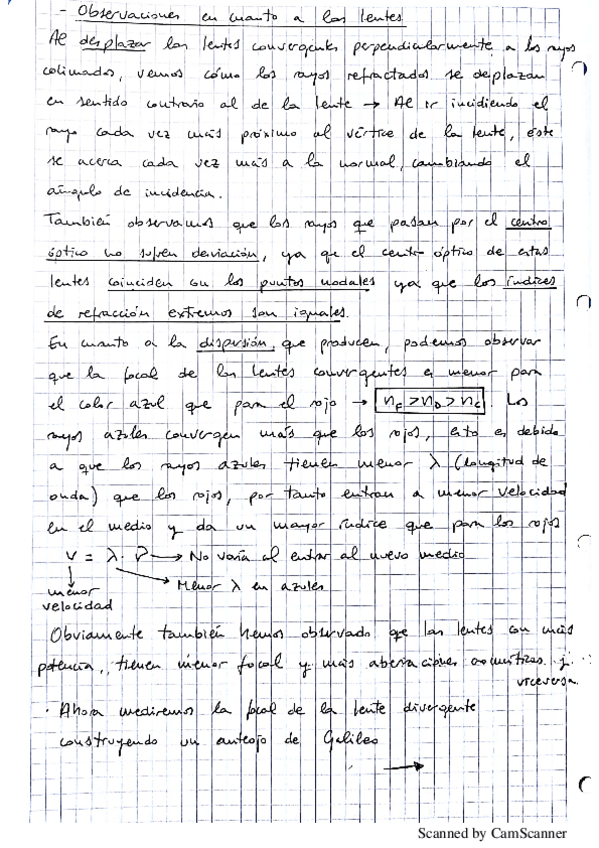 - Observaciones en cuanto a las lentes
Al desplazar las lentes convergentes perpendicularmente a los rayos
colimados, vemos cómo los rayos refractados se deplazan
en sentido contrario al de la lente → Al ir incidiendo el
rayo cada vez más próximo al vértice de la lente, éste
se acerca cada vez más a la normal, cambiando el
ángulo de incidencia.
También observamos que los rayos que pasan por el centro
óptico no sufren desviación, ya que el centro óptico de estas
lentes coinciden con los puntos nodales ya que los índices
de refracción extremos son iguales.
En cuanto a la dispersión, que producen, podemos observar
que la focal de las lentes convergentes es menor para
el color azul que para el rojo → n_F > n_D > n_C. Los
rayos azules convergen más que los rojos, esto es debido
a que los rayos azules tienen menor λ (longitud de
onda) que los rojos, por tanto entran a menor velocidad
en el medio y da un mayor índice que para los rojos
v = λ · ν → No varía al entrar al nuevo medio
→ Menor λ en azules
menor
velocidad
Obviamente también hemos observado que las lentes con más
potencia, tienen menor focal y más aberraciones cromáticas y
viceversa.
· Ahora mediremos la focal de la lente divergente
construyendo un anteojo de Galileo
→
Scanned by CamScanner